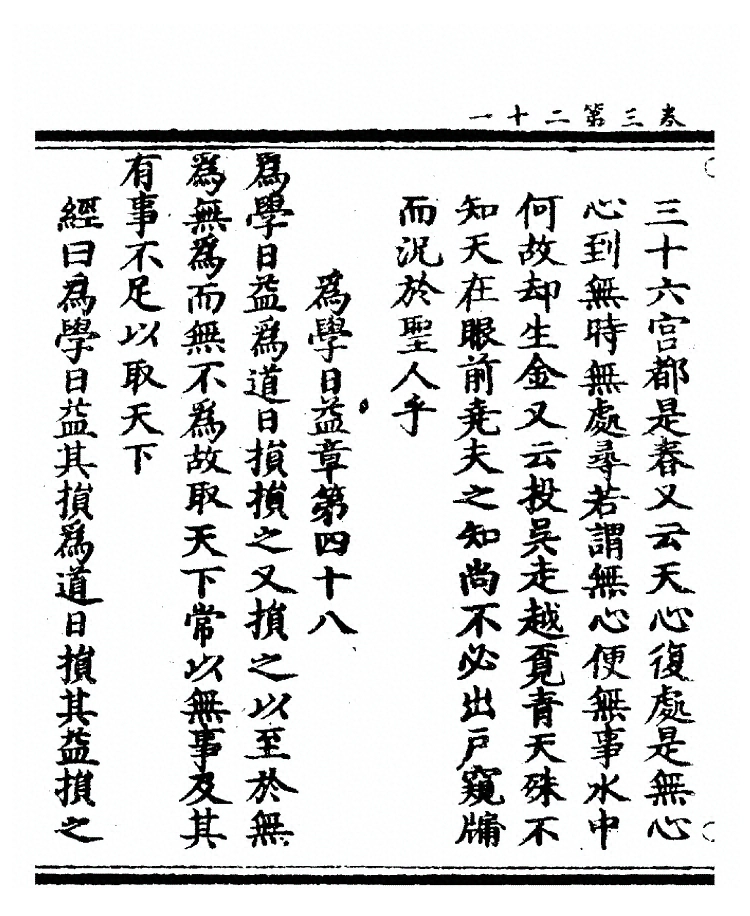 卷三第二十一
三十六宮都是春又云天心復處是無心
心到無時無處尋若謂無心便無事水中
何故却生金又云投吳走越覓青天殊不
知天在眼前堯夫之知尚不必出戶窺牖
而況於聖人乎
為學日益章第四十八
為學日益為道日損損之又損之以至於無
為無為而無不為故取天下常以無事及其
有事不足以取天下
經曰為學日益其損為道日損其益損之